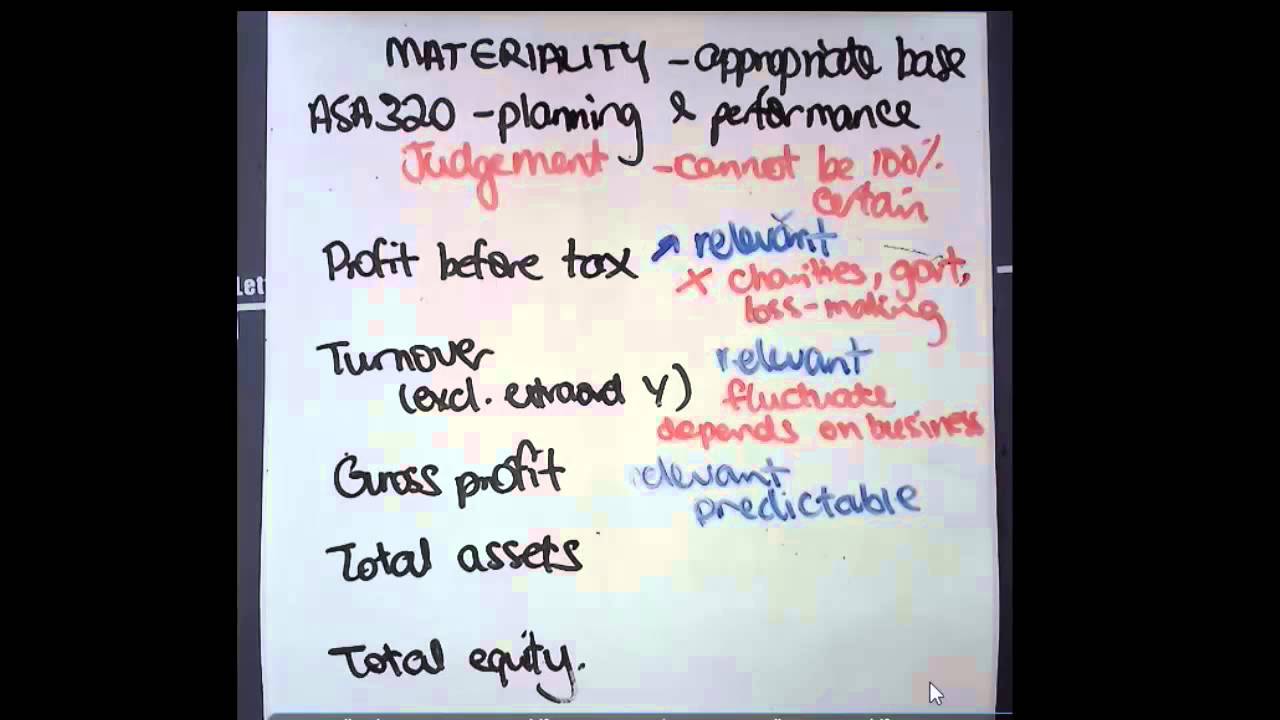 MATERIALITY - appropriate base
ASA320 - planning & performance
Judgement - cannot be 100%
certain
Profit before tax ↗ relevant
x charities, govt,
loss-making
Let
Turnover relevant
(excl. extraord Y) fluctuate
depends on business
Gross profit relevant
predictable
Total assets
Total equity.